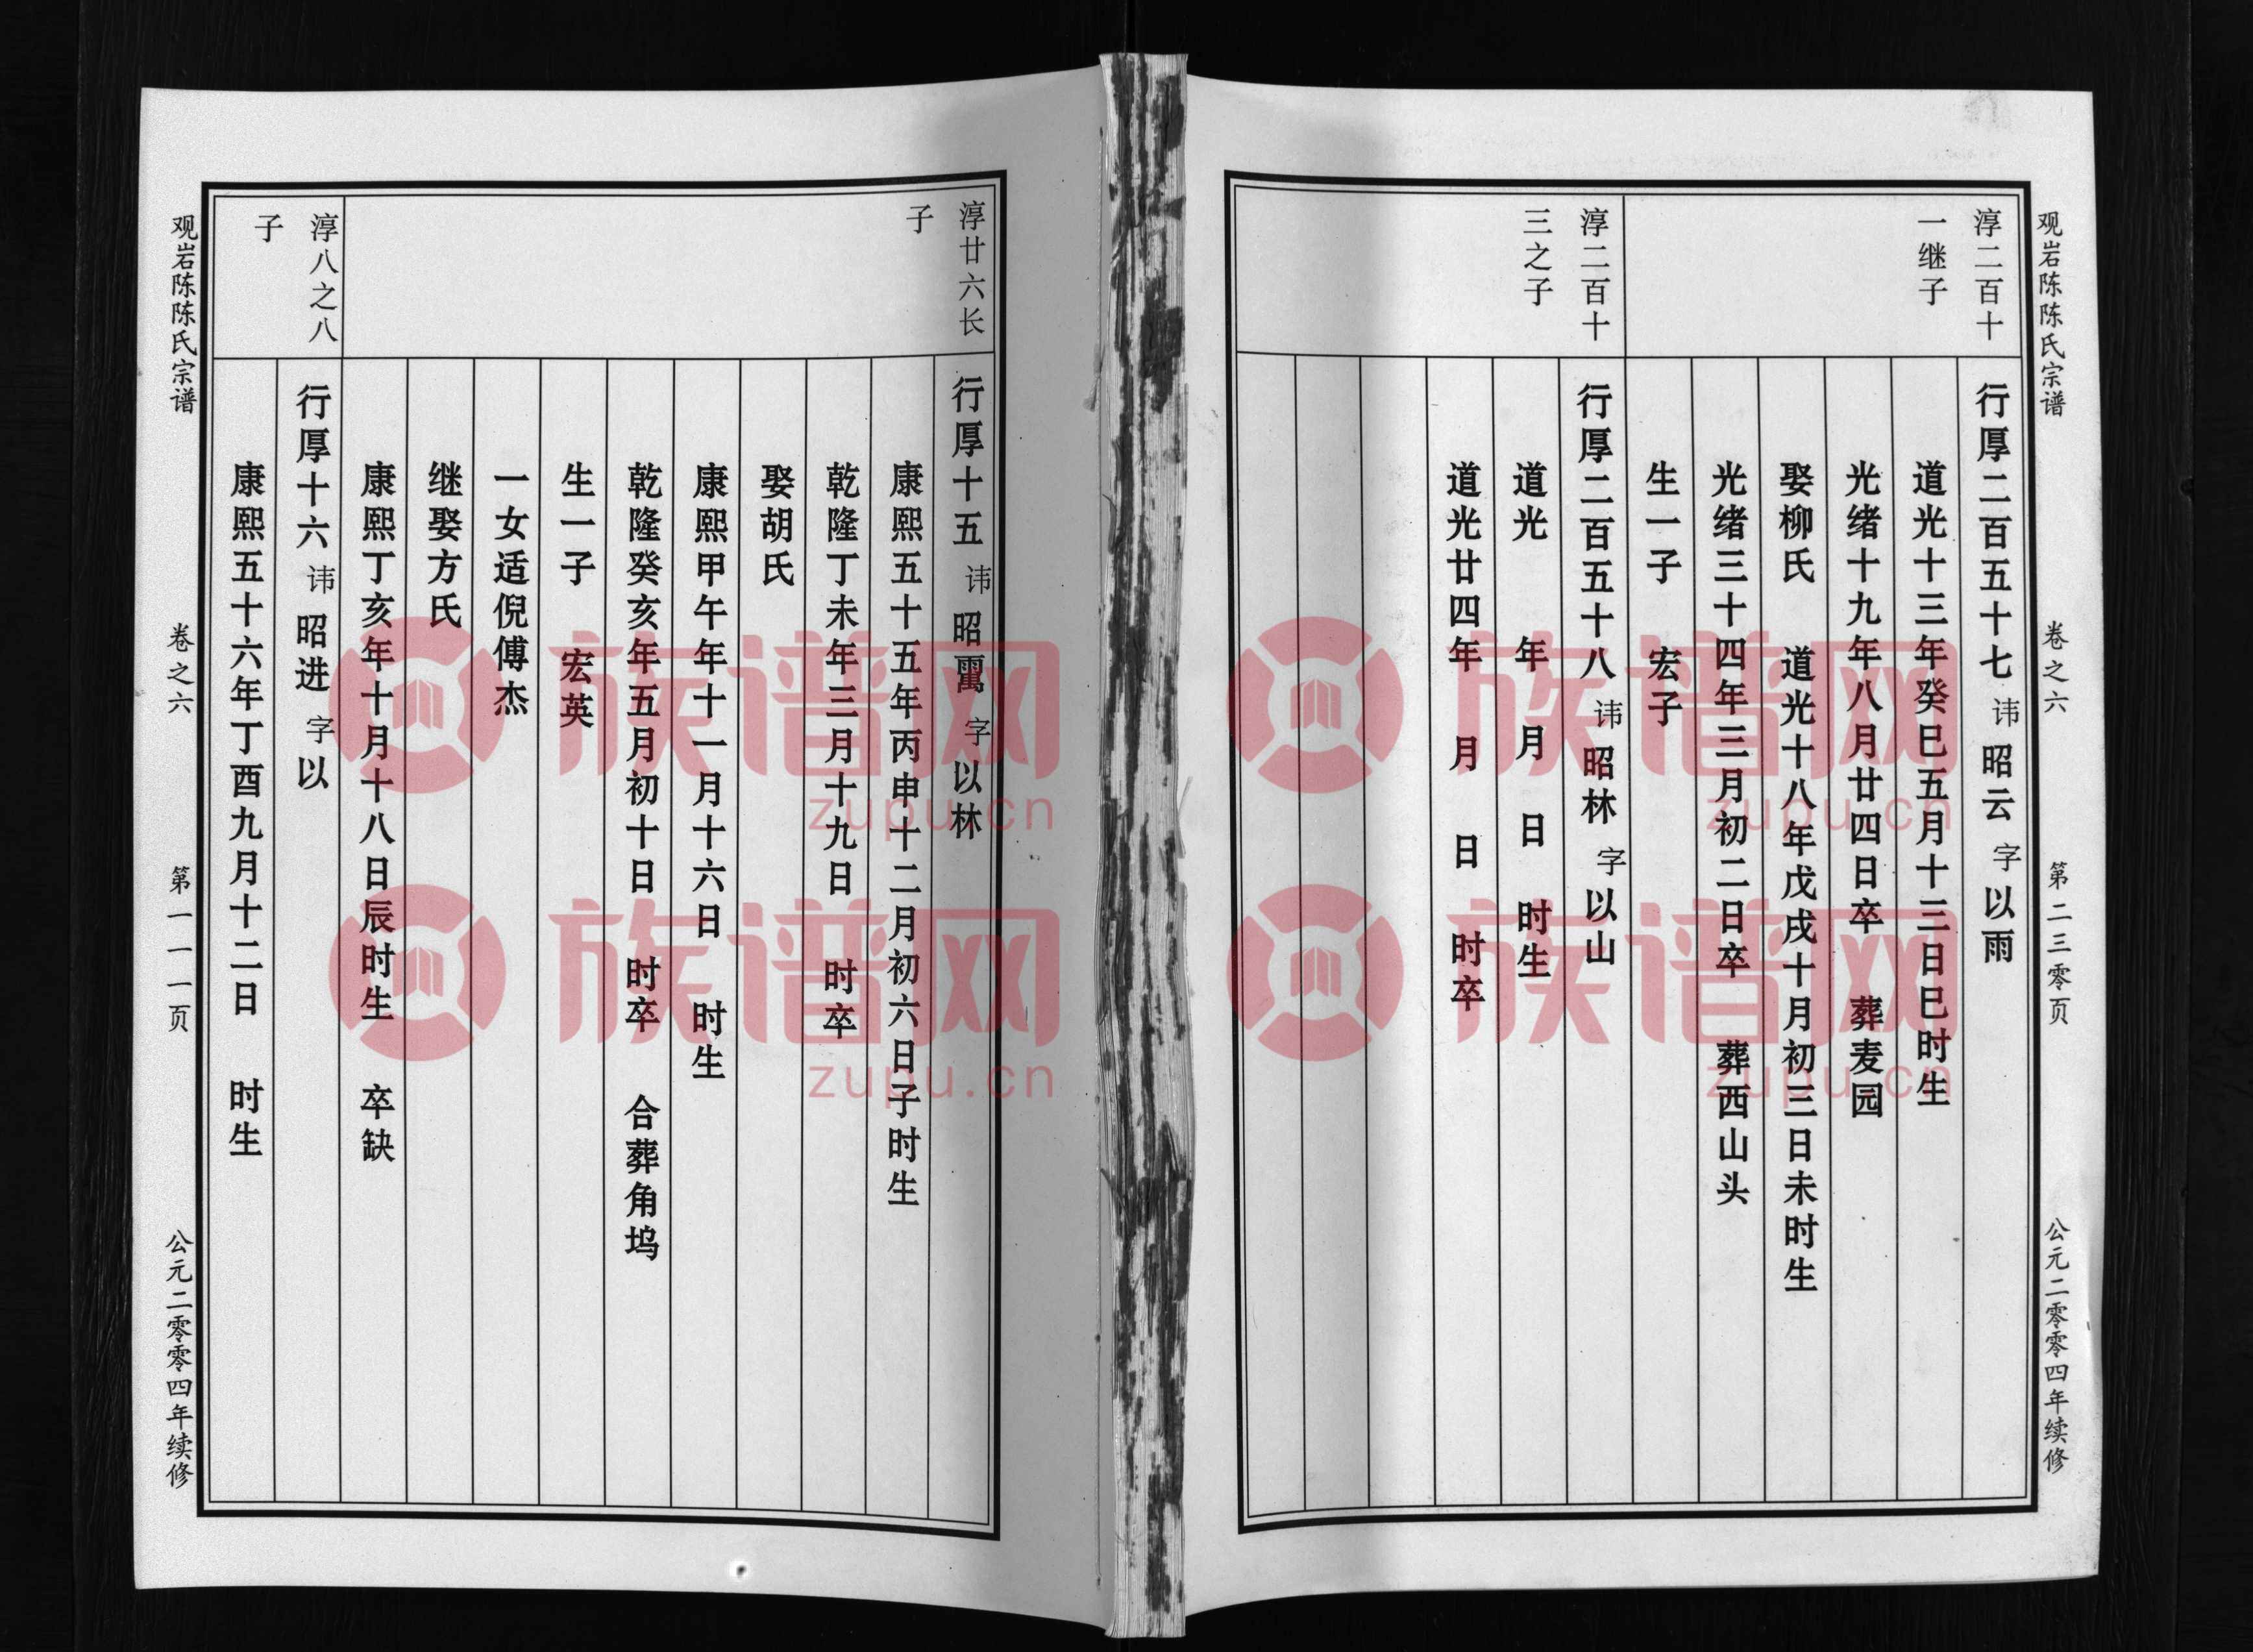 观岩陈陈氏宗谱 卷之六 第二三零页 公元二零零四年续修
淳二百十
一继子
行厚二百五十七 讳 昭云 字 以雨
道光十三年癸巳五月十三日巳时生
光绪十九年八月廿四日卒 葬麦园
娶柳氏 道光十八年戊戌十月初三日未时生
光绪三十四年三月初二日卒 葬西山头
生一子 宏子
淳二百十
三之子
行厚二百五十八 讳 昭林 字 以山
道光 年 月 日 时生
道光廿四年 月 日 时卒
淳廿六长
子
行厚十五 讳 昭 字 以林
康熙五十五年丙申十二月初六日子时生
乾隆丁未年三月十九日 时卒
娶胡氏
康熙甲午年十一月十六日 时生
乾隆癸亥年五月初十日 时卒 合葬角坞
生一子 宏英
一女适倪傅杰
继娶方氏
康熙丁亥年十月十八日辰时生 卒缺
淳八之八
子
行厚十六 讳 昭进 字 以
康熙五十六年丁酉九月十二日 时生
观岩陈陈氏宗谱 卷之六 第一一一页 公元二零零四年续修
族谱网
zupu.cn
族谱网
zupu.cn
族谱网
zupu.cn
族谱网
zupu.cn